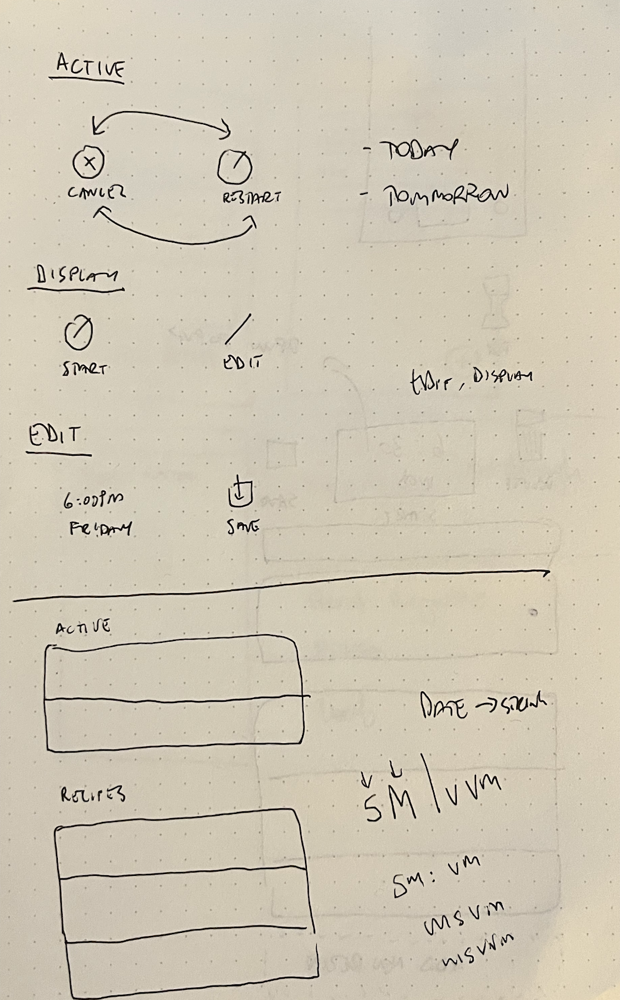 ACTIVE
CANCEL
RESTART
- TODAY
- TOMMORROW
DISPLAY
START
EDIT
EDIT, DISPLAY
EDIT
6:00PM
FRIDAY
SAVE
ACTIVE
DATE → STRING
RECIPES
SM | VVM
SM: VM
MSVM
MSVVM